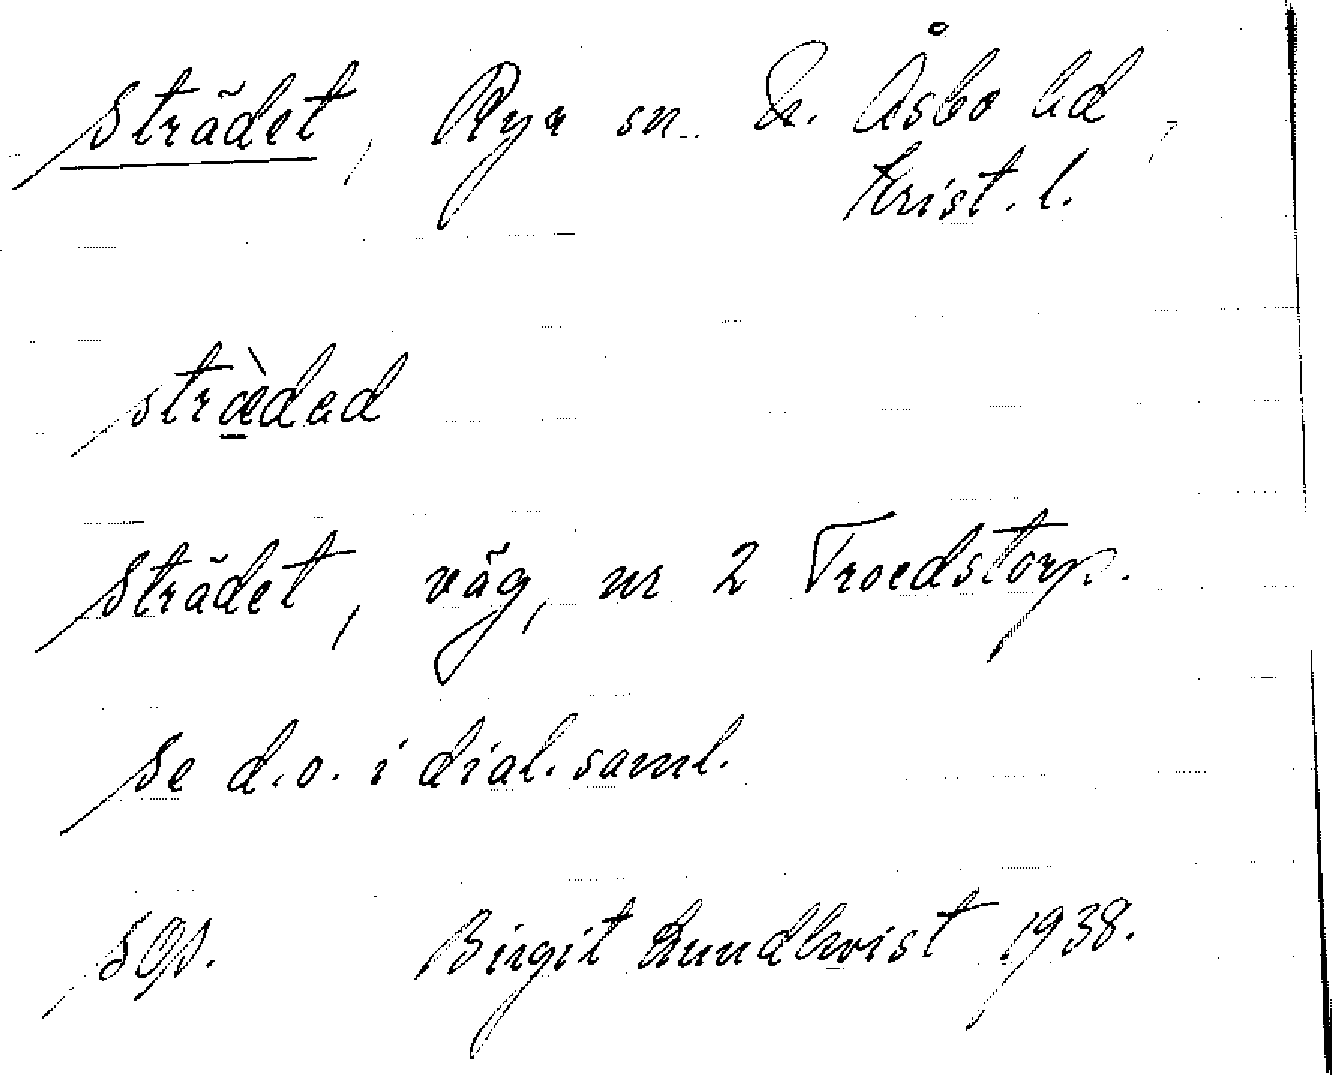 Strädet, Rya sn. N. Åsbo hd,
Krist. l.
stræ̀dad
Strädet, väg, nr 2 Troedstorp.
Se d.o. i dial. saml.
Birgit Lundkvist 1938.